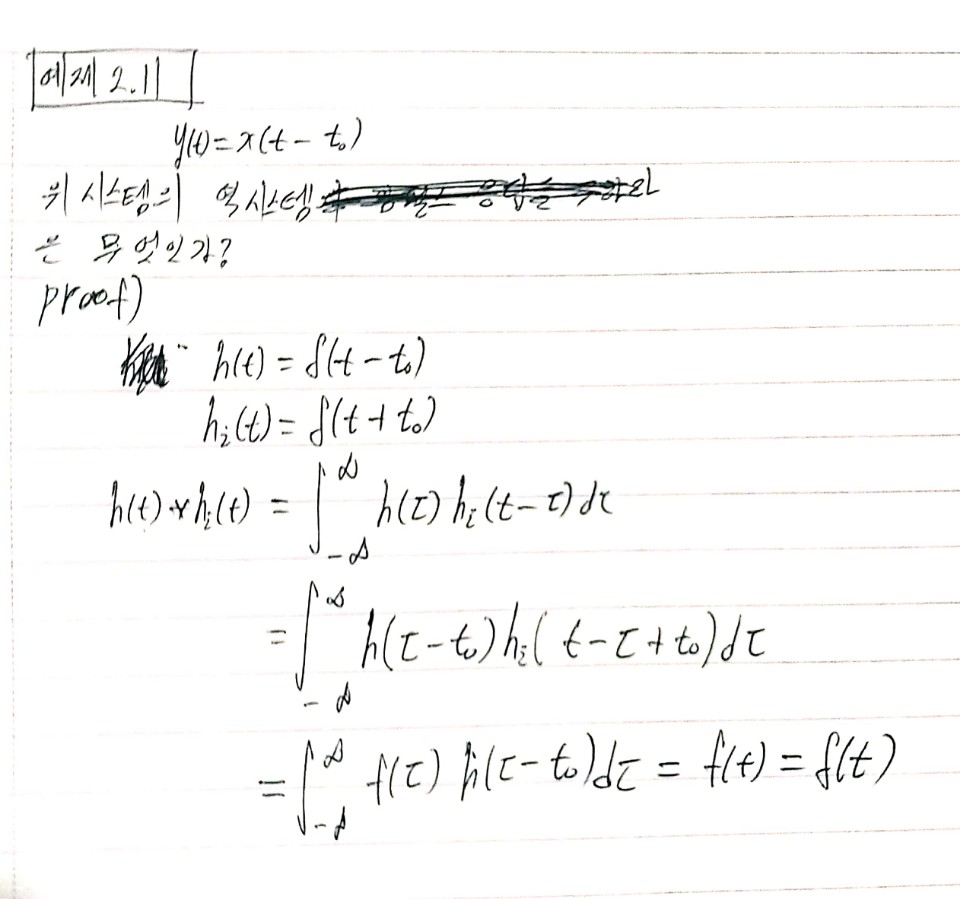 예제 2.11
y(t) = x(t - t₀)
위 시스템의 역시스템
은 무엇인가?
proof)
h(t) = δ(t - t₀)
hᵢ(t) = δ(t + t₀)
h(t) * hᵢ(t) = ∫_{-∞}^{∞} h(τ) hᵢ(t - τ) dτ
= ∫_{-∞}^{∞} h(τ - t₀) hᵢ(t - τ + t₀) dτ
= ∫_{-∞}^{∞} f(τ) h(τ - t₀) dτ = f(t) = δ(t)